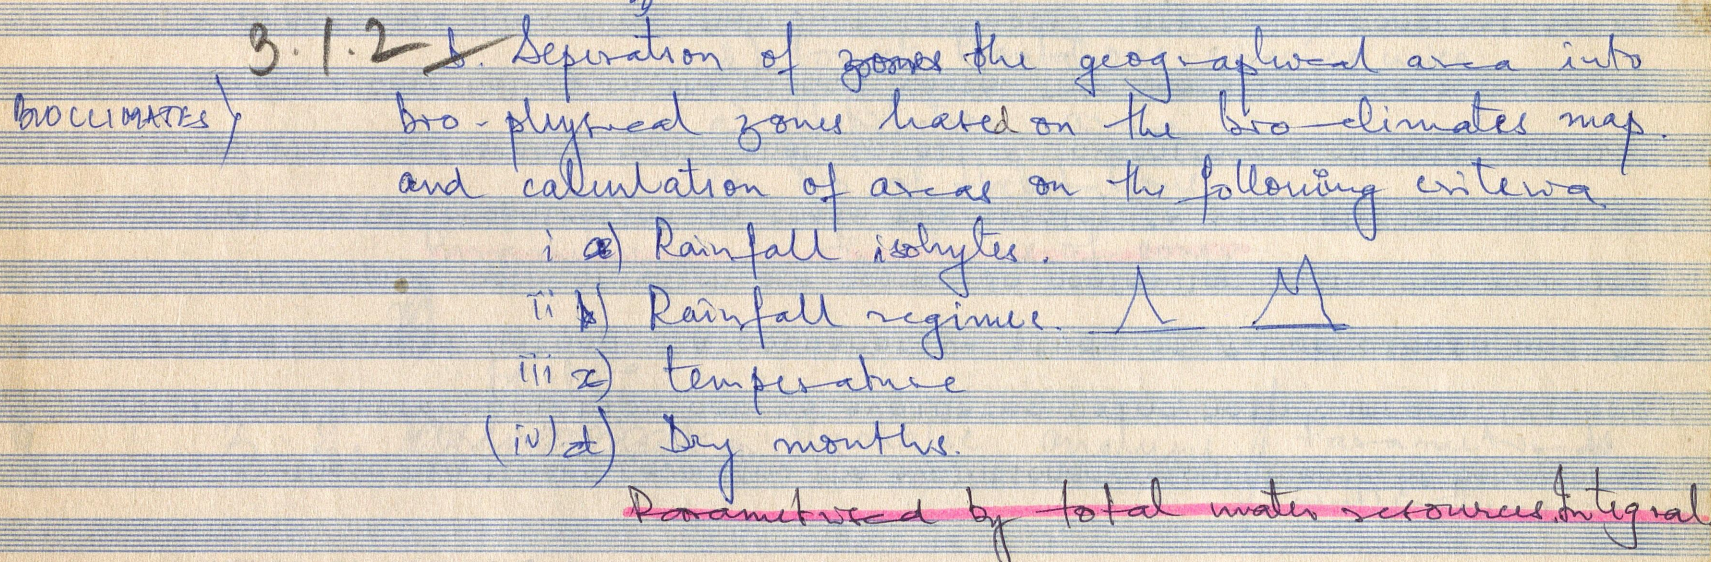 3.1.2 Seperation of zones the geographical area into
BIOCLIMATES} bio-physical zones based on the bio-climates map.
and calculation of areas on the following criteria
i a) Rainfall isohytes.
ii b) Rainfall regimes.
iii c) temperature
(iv) d) Dry months.
Parametrised by total water resources. Integral